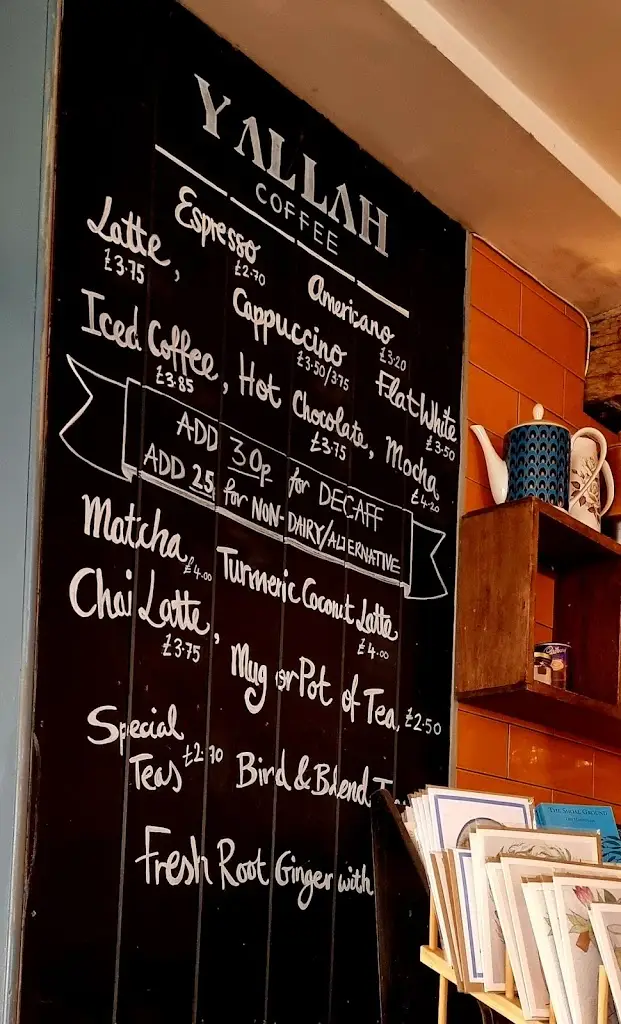 YALLAH
COFFEE
Espresso
£2.70
Latte,
£3.75
Americano
£3.20
Cappuccino
£3.50/375
Iced Coffee,
£3.85
Flat White
£3.50
Hot Chocolate,
£3.75
Mocha
£4.20
ADD 30p for DECAFF
ADD 25 for NON-DAIRY/ALTERNATIVE
Matcha
£4.00
Turmeric Coconut Latte
£4.00
Chai Latte,
£3.75
Mug or Pot of Tea, £2.50
Special
Teas £2.70
Bird & Blend
Fresh Root Ginger with
Cadbury
THE SOCIAL GROUND